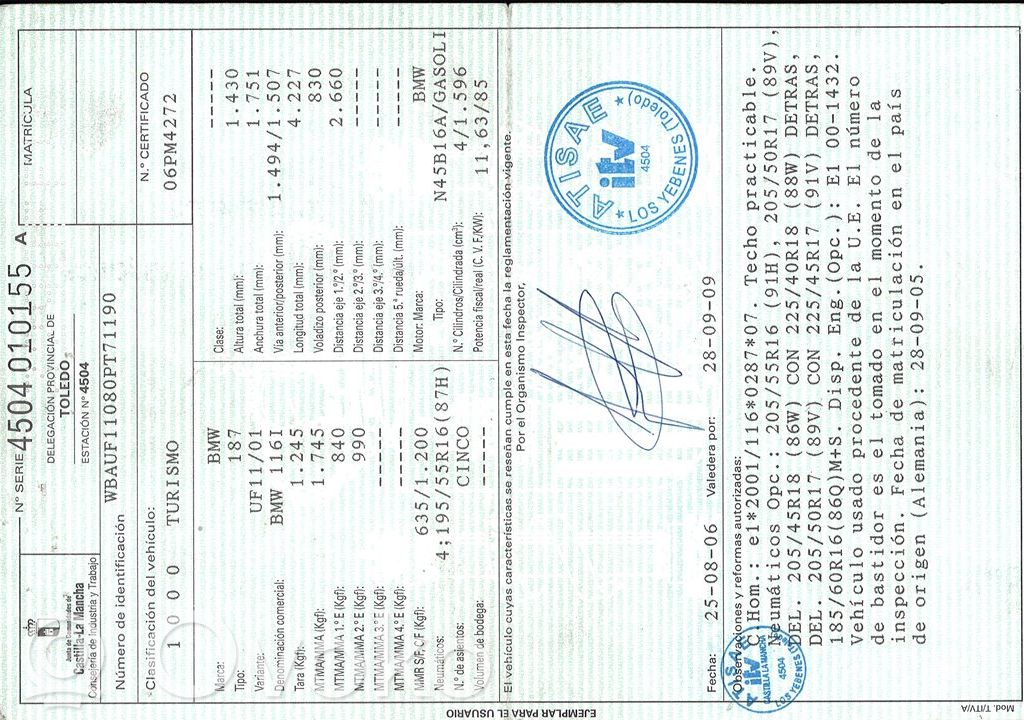 Junta de Comunidades de
Castilla-La Mancha
Consejería de Industria y Trabajo
N.º SERIE 4504 010155 A
DELEGACIÓN PROVINCIAL DE
TOLEDO
ESTACIÓN Nº 4504
MATRÍCULA
Número de identificación WBAUF11080PT71190
N.º CERTIFICADO
06PM4272
Clasificación del vehículo:
1 0 0 0 TURISMO
Marca: BMW
Tipo: 187
Variante: UF11/01
Denominación comercial: BMW 116I
Tara (Kgf): 1.245
MTMA/MMA (Kgf): 1.745
MTMA/MMA 1.º E (Kgf): 840
MTMA/MMA 2.º E (Kgf): 990
MTMA/MMA 3.º E (Kgf): -----
MTMA/MMA 4.º E (Kgf): -----
MMR S/F, C/F (Kgf): 635/1.200
Neumáticos: 4;195/55R16(87H)
N.º de asientos: CINCO
Volumen de bodega: -----
Clase: -----
Altura total (mm): 1.430
Anchura total (mm): 1.751
Vía anterior/posterior (mm): 1.494/1.507
Longitud total (mm): 4.227
Voladizo posterior (mm): 830
Distancia eje 1.º/2.º (mm): 2.660
Distancia eje 2.º/3.º (mm): -----
Distancia eje 3.º/4.º (mm): -----
Distancia 5.ª rueda/últ. (mm): -----
Motor: Marca: BMW
Tipo: N45B16A/GASOLI
N.º Cilindros/Cilindrada (cm³): 4/1.596
Potencia fiscal/real (C. V. F./KW): 11,63/85
El vehículo cuyas características se reseñan cumple en esta fecha la reglamentación vigente.
Por el Organismo Inspector,
ATISAE
itv
4504
LOS YEBENES (Toledo)
Fecha: 25-08-06 Valedera por: 28-09-09
Observaciones y reformas autorizadas:
C.Hom.: e1*2001/116*0287*07. Techo practicable.
Neumáticos Opc.: 205/55R16 (91H), 205/50R17 (89V),
DEL. 205/45R18 (86W) CON 225/40R18 (88W) DETRAS,
DEL. 205/50R17 (89V) CON 225/45R17 (91V) DETRAS,
185/60R16(86Q)M+S. Disp. Eng.(Opc.): E1 00-1432.
Vehículo usado procedente de la U.E. El número
de bastidor es el tomado en el momento de la
inspección. Fecha de matriculación en el país
de origen (Alemania): 28-09-05.
ATISAE
itv
CASTILLA LA MANCHA
4504
LOS YEBENES
EJEMPLAR PARA EL USUARIO
Mod. T/ITV/A